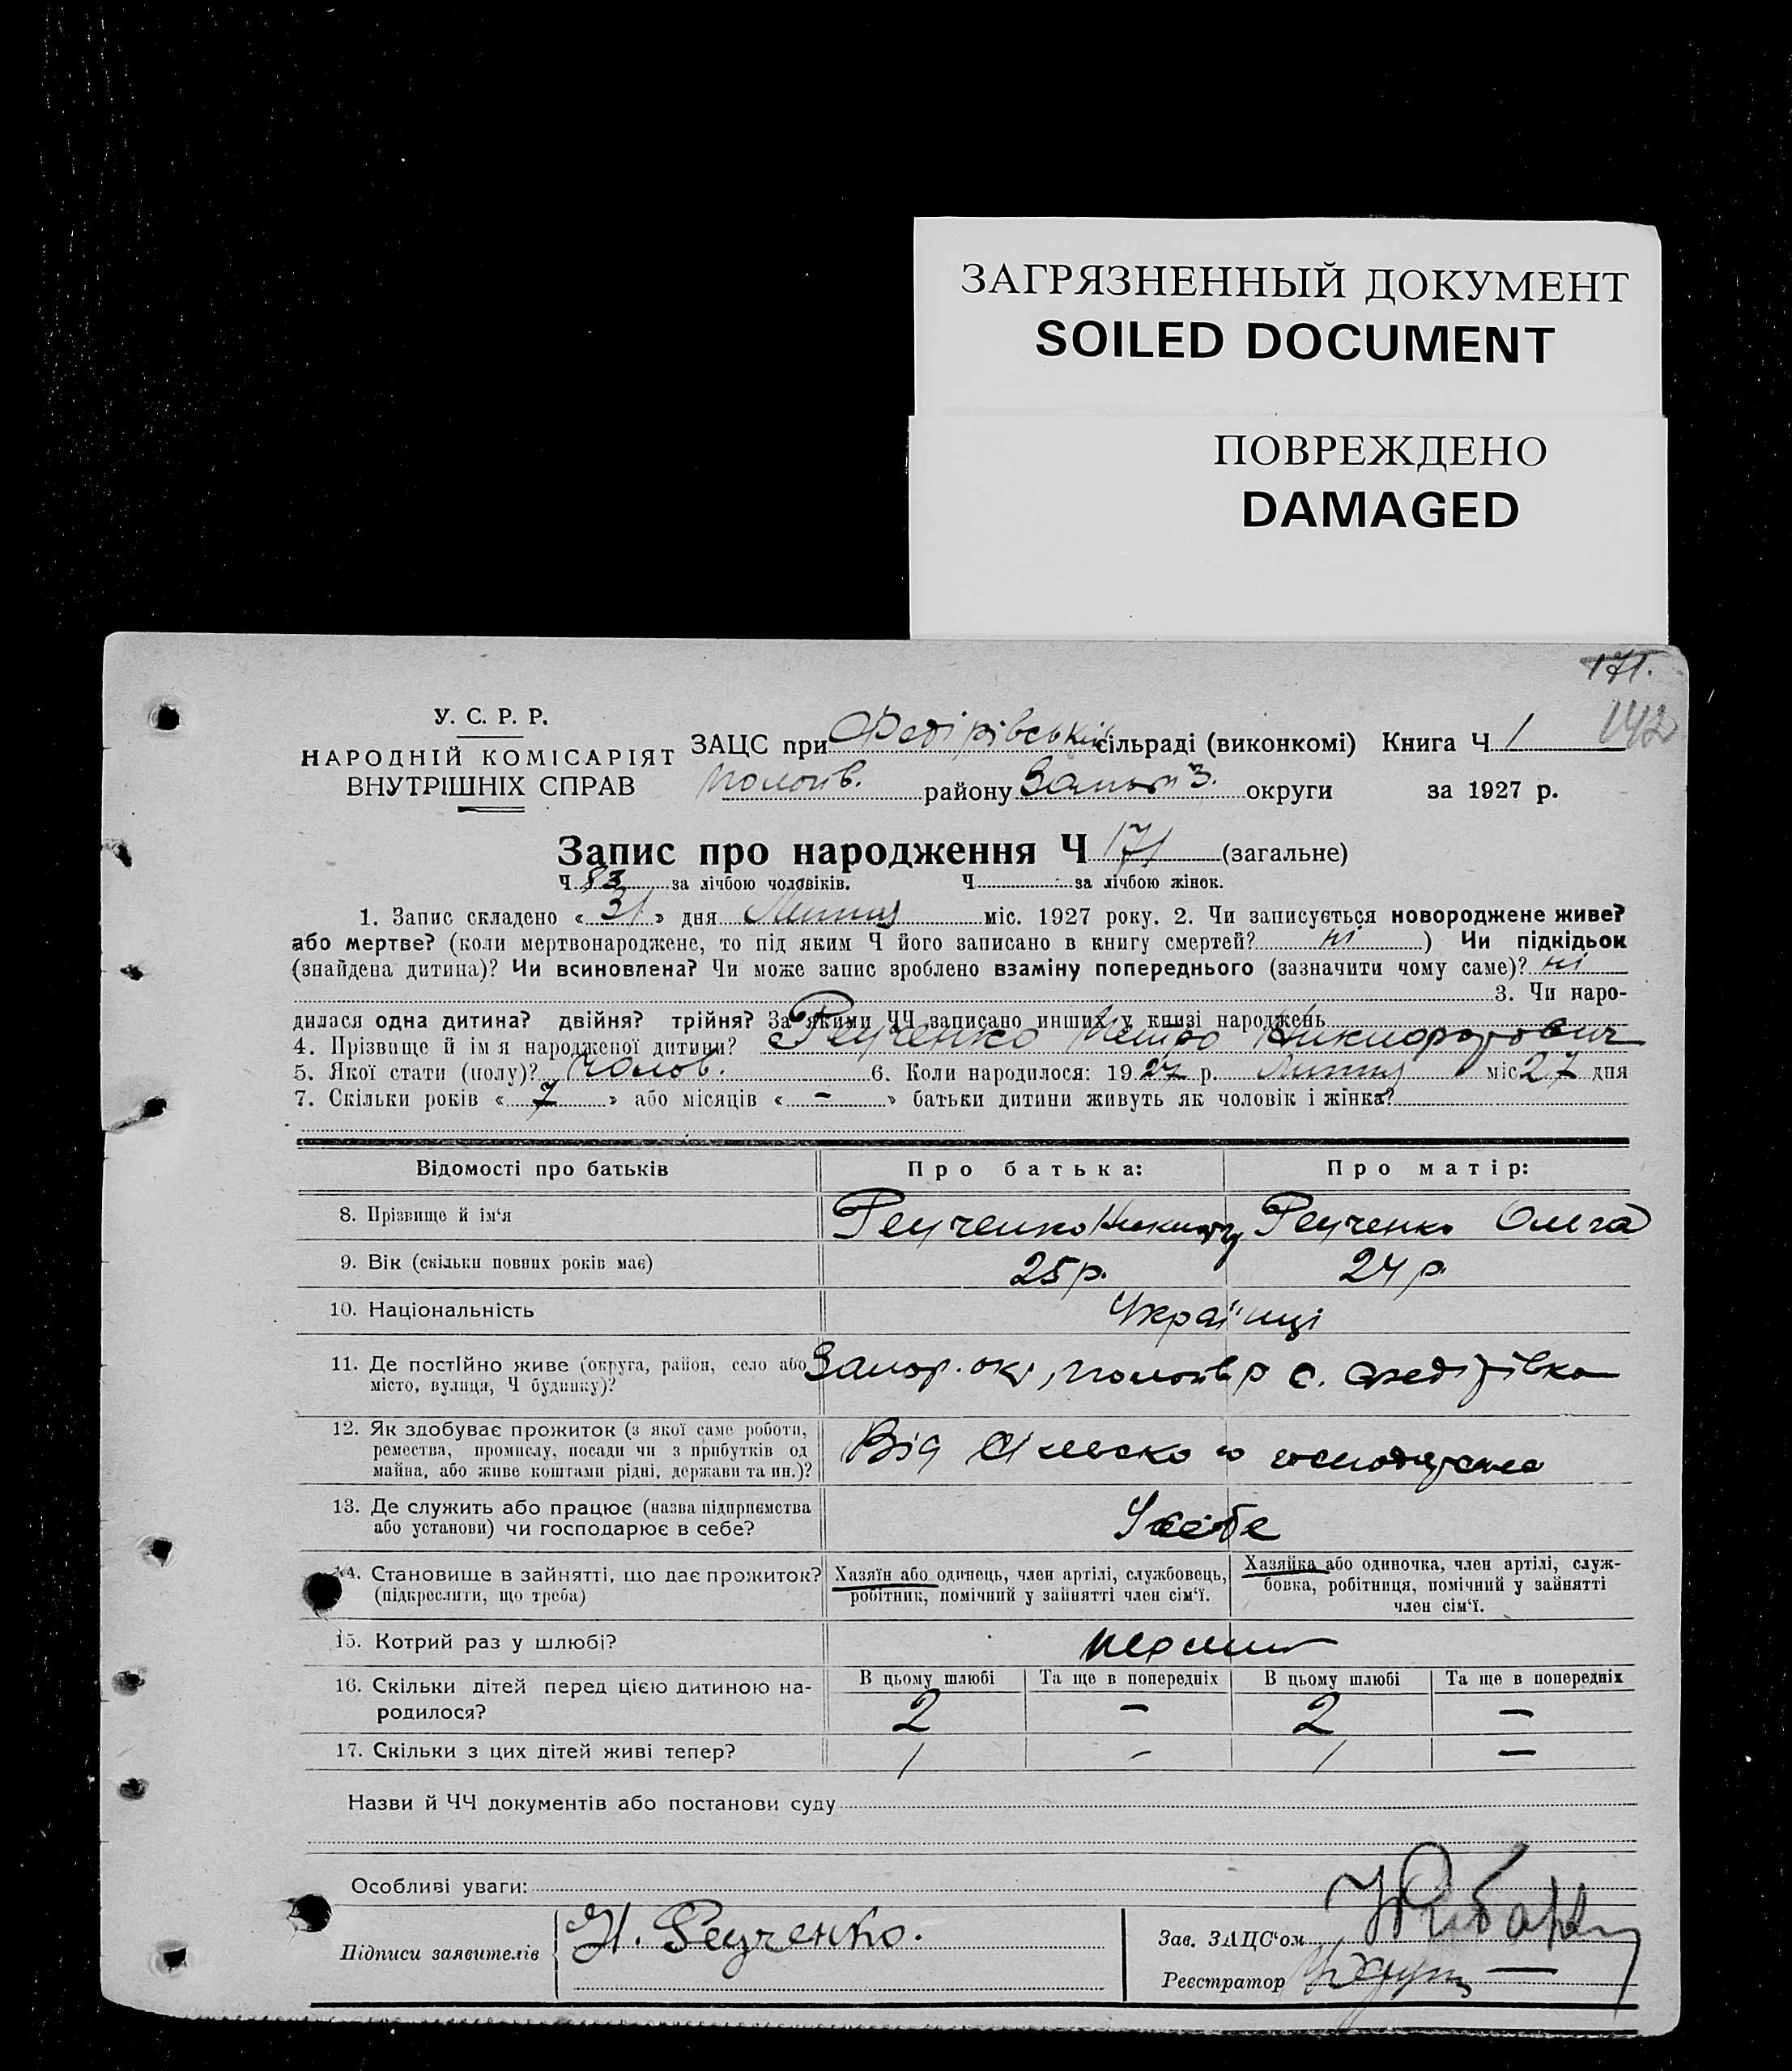 ЗАГРЯЗНЕННЫЙ ДОКУМЕНТ
SOILED DOCUMENT
ПОВРЕЖДЕНО
DAMAGED
171.
142
У. С. Р. Р.
НАРОДНІЙ КОМІСАРІЯТ
ВНУТРІШНІХ СПРАВ
ЗАЦС при Федірівській сільраді (виконкомі) Книга Ч 1
Пологів. району Запоріз. округи за 1927 р.
Запис про народження Ч 171 (загальне)
Ч 83 за лічбою чоловіків. Ч за лічбою жінок.
1. Запис складено « 31 » дня Липня міс. 1927 року. 2. Чи записується новороджене живе?
або мертве? (коли мертвонароджене, то під яким Ч його записано в книгу смертей? ні ) Чи підкідьок
(знайдена дитина)? Чи всиновлена? Чи може запис зроблено взаміну попереднього (зазначити чому саме)? ні
3. Чи наро-
дилася одна дитина? двійня? трійня? За якими ЧЧ записано инших у книзі народжень
4. Прізвище й ім'я народженої дитини? Реученко Петро Никифорович
5. Якої стати (полу)? чолов. 6. Коли народилося: 1927 р. Липня міс 27 дня
7. Скільки років « 7 » або місяців « – » батьки дитини живуть як чоловік і жінка?
Відомості про батьків Про батька: Про матір:
8. Прізвище й ім'я Реученко Реученко Ольга
9. Вік (скільки повних років має) 25 р. 24 р.
10. Національність Українці
11. Де постійно живе (округа, район, село або Запор. окр, Пологів р с. Федірівка
місто, вулиця, Ч будинку)?
12. Як здобуває прожиток (з якої саме роботи,
ремества, промислу, посади чи з прибутків од Від сільского господарства
майна, або живе коштами рідні, держави та ин.)?
13. Де служить або працює (назва підприємства
або установи) чи господарює в себе? У себе
14. Становище в зайнятті, що дає прожиток? Хазяїн або одинець, член артілі, службовець, Хазяйка або одиночка, член артілі, служ-
(підкреслити, що треба) робітник, помічний у зайнятті член сім'ї. бовка, робітниця, помічний у зайнятті
член сім'ї.
15. Котрий раз у шлюбі? перший
16. Скільки дітей перед цією дитиною на- В цьому шлюбі Та ще в попередніх В цьому шлюбі Та ще в попередніх
родилося? 2 – 2 –
17. Скільки з цих дітей живі тепер? 1 – 1 –
Назви й ЧЧ документів або постанови суду
Особливі уваги:
Підписи заявителів Н. Реученко.
Зав. ЗАЦС'ом
Реєстратор